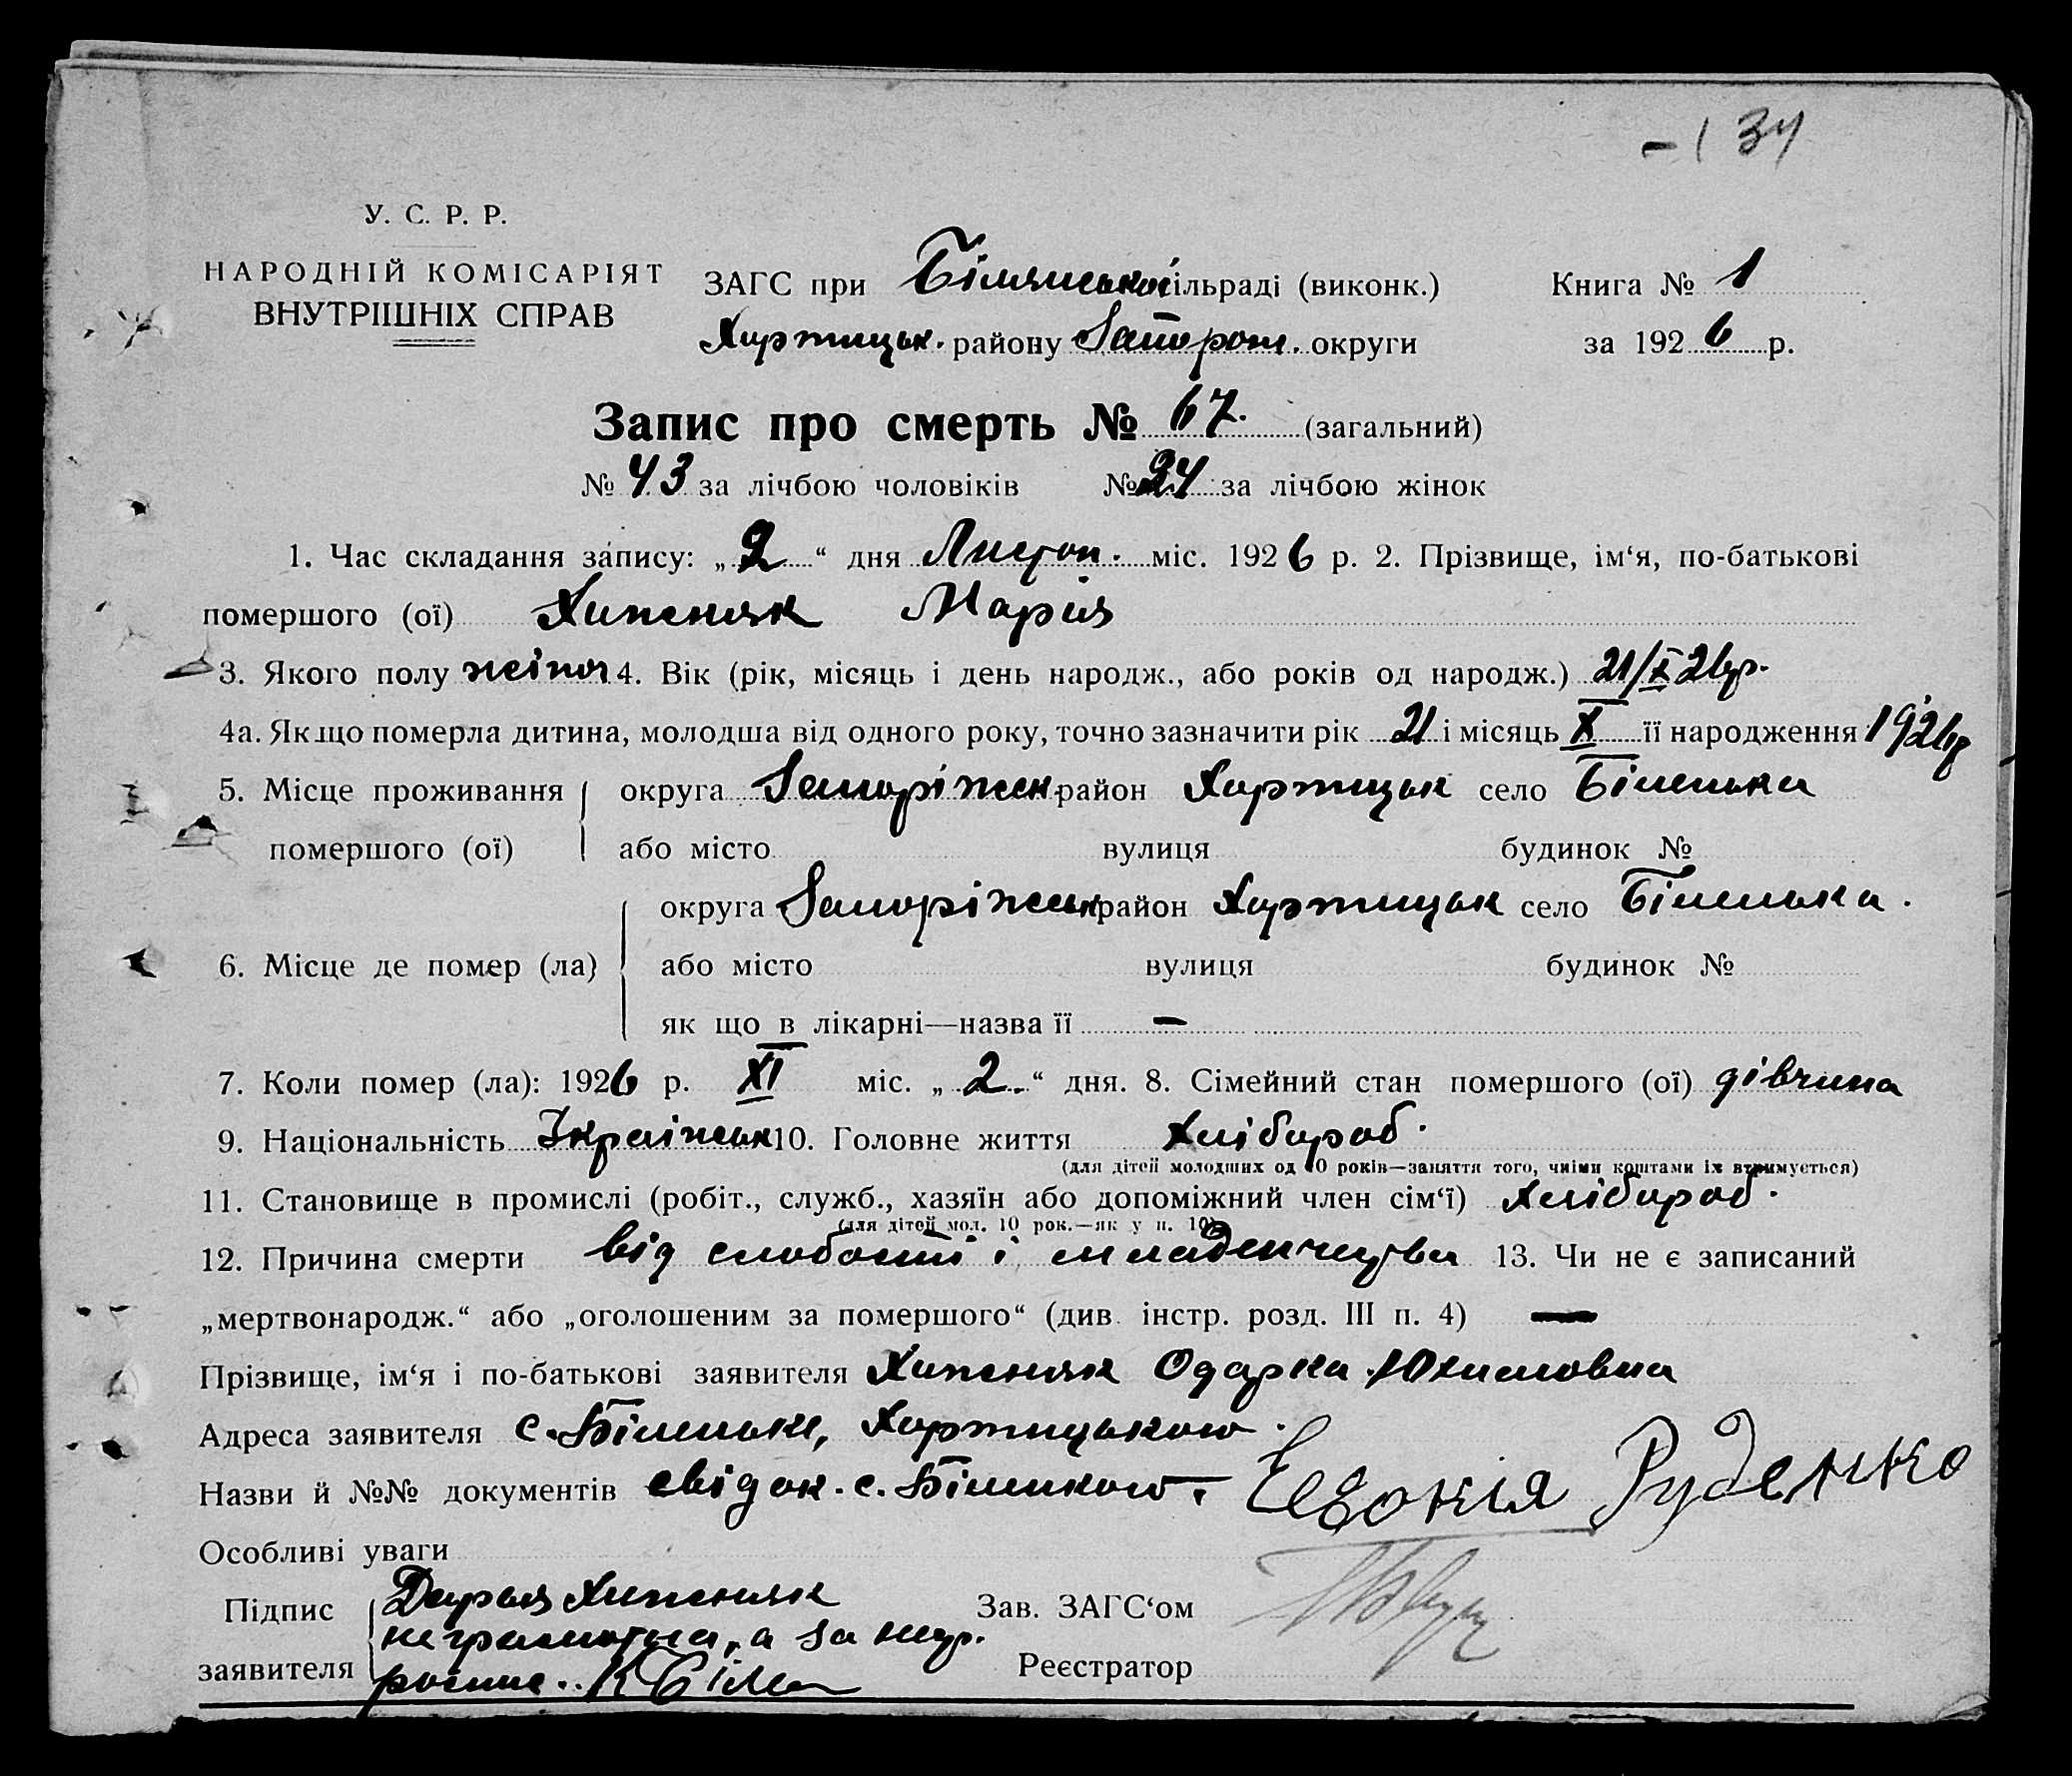 34
У. С. Р. Р.
НАРОДНІЙ КОМІСАРІЯТ
ВНУТРІШНІХ СПРАВ
ЗАГС при Біленської сільраді (виконк.) Книга № 1
Хортицьк. району Запорож. округи за 1926 р.
Запис про смерть № 67. (загальний)
№ 43 за лічбою чоловіків № 24 за лічбою жінок
1. Час складання запису: „2“ дня Листоп. міс. 1926 р. 2. Прізвище, ім‘я, по-батькові
помершого (ої) Хижняк Марія
3. Якого полу жіноч 4. Вік (рік, місяць і день народж., або років од народж.) 21/X 26р.
4а. Якщо померла дитина, молодша від одного року, точно зазначити рік 21 і місяць X її народження 1926р
5. Місце проживання округа Запоріжск. район Хортицьк село Біленька
помершого (ої) або місто вулиця будинок №
округа Запоріжськ район Хортицьк село Біленька.
6. Місце де помер (ла) або місто вулиця будинок №
як що в лікарні—назва її —
7. Коли помер (ла): 1926 р. XI міс. „2.“ дня. 8. Сімейний стан помершого (ої) дівчина
9. Національність Українськ 10. Головне життя Хлібороб.
(для дітей молодших од 10 років—заняття того, чиїми коштами їх втримується)
11. Становище в промислі (робіт., служб., хазяїн або допоміжний член сім‘ї) хлібороб.
(для дітей мол. 10 рок.—як у п. 10)
12. Причина смерти від слобости і младенчества 13. Чи не є записаний
„мертвонародж.“ або „оголошеним за помершого“ (див. інстр. розд. III п. 4) —
Прізвище, ім‘я і по-батькові заявителя Хижняк Одарка Юхимовна
Адреса заявителя с. Біленьке, Хортицького.
Назви й №№ документів свідок. с. Біленького. Евдокія Руденко
Особливі уваги
Підпис Дарья Хижняк Зав. ЗАГС‘ом
неграмотна, а за неї
заявителя роспис. Реєстратор